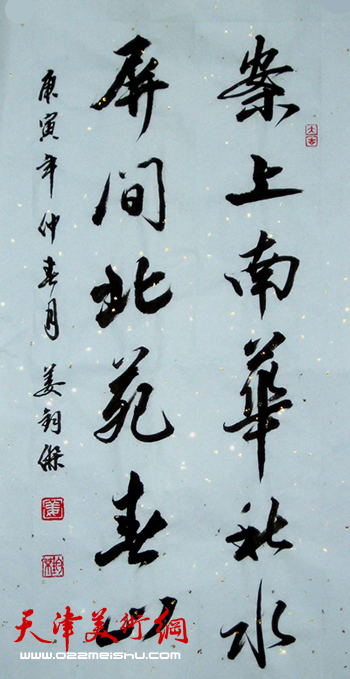 案上南華秋水
屏間北苑春山
庚寅年仲春月 姜鈞傑
天津美術網
www.022meishu.com